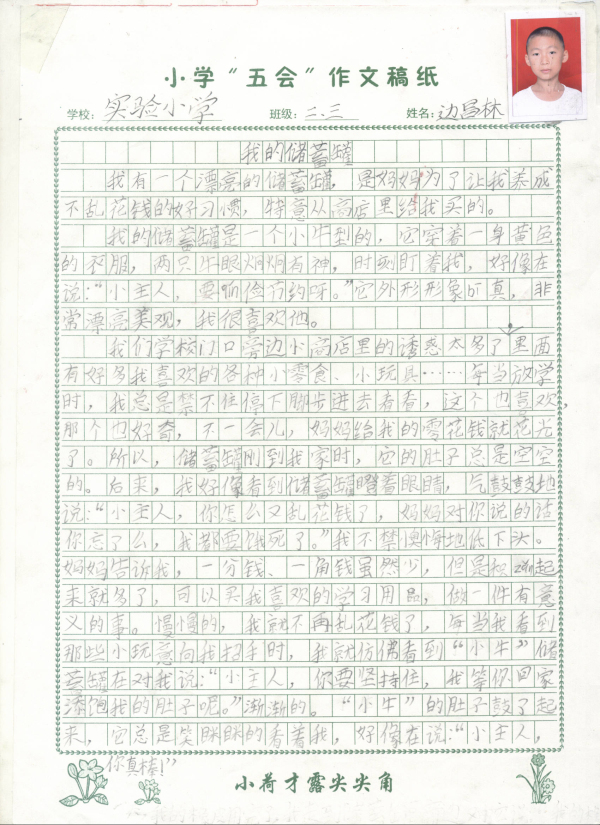 小学“五会”作文稿纸
学校: 实验小学 班级: 二.三 姓名: 边昌林
我的储蓄罐
我有一个漂亮的储蓄罐，是妈妈为了让我养成
不乱花钱的好习惯，特意从商店里给我买的。
我的储蓄罐是一个小牛型的，它穿着一身黄色
的衣服，两只牛眼炯炯有神，时刻盯着我，好像在
说：“小主人，要节俭节约呀。”它外形形象bī真，非
常漂亮美观，我很喜欢他。
我们学校门口旁边小商店里的诱惑太多了里面
有好多我喜欢的各种小零食、小玩具……每当放学
时，我总是禁不住停下脚步进去看看，这个也喜欢，
那个也好奇，不一会儿，妈妈给我的零花钱就花光
了。所以，储蓄罐刚到我家时，它的肚子总是空空
的。后来，我好像看到储蓄罐瞪着眼睛，气鼓鼓地
说：“小主人，你怎么又乱花钱了，妈妈对你说的话
你忘了么，我都要饿死了。”我不禁懊悔地低下头。
妈妈告诉我，一分钱、一角钱虽然少，但是积zǎn起
来就多了，可以买我喜欢的学习用品，做一件有意
义的事。慢慢的，我就不再乱花钱了，每当我看到
那些小玩意向我招手时，我就仿佛看到“小牛”储
蓄罐在对我说：“小主人，你要坚持住，我等你回家
添饱我的肚子呢。”渐渐的。“小牛”的肚子鼓了起
来，它总是笑眯眯的看着我，好像在说：“小主人，
你真棒！”
小荷才露尖尖角